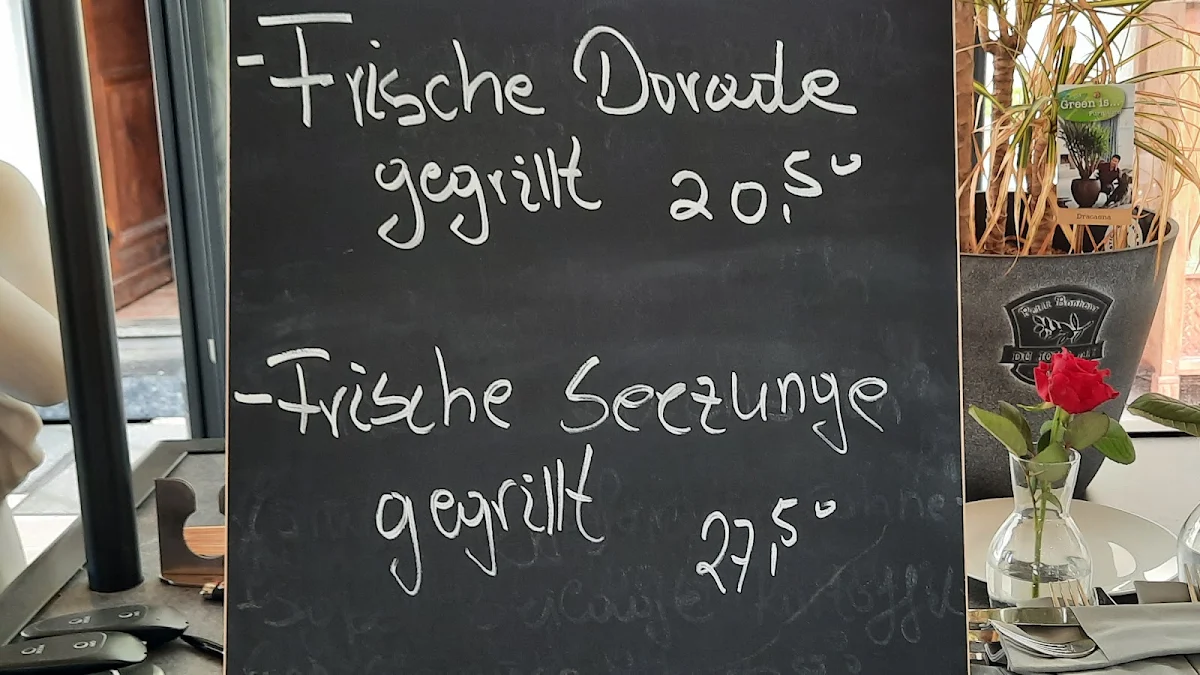 - Frische Dorade
gegrillt 20,50
- Frische Seezunge
gegrillt 27,50
Green is...
Dracaena